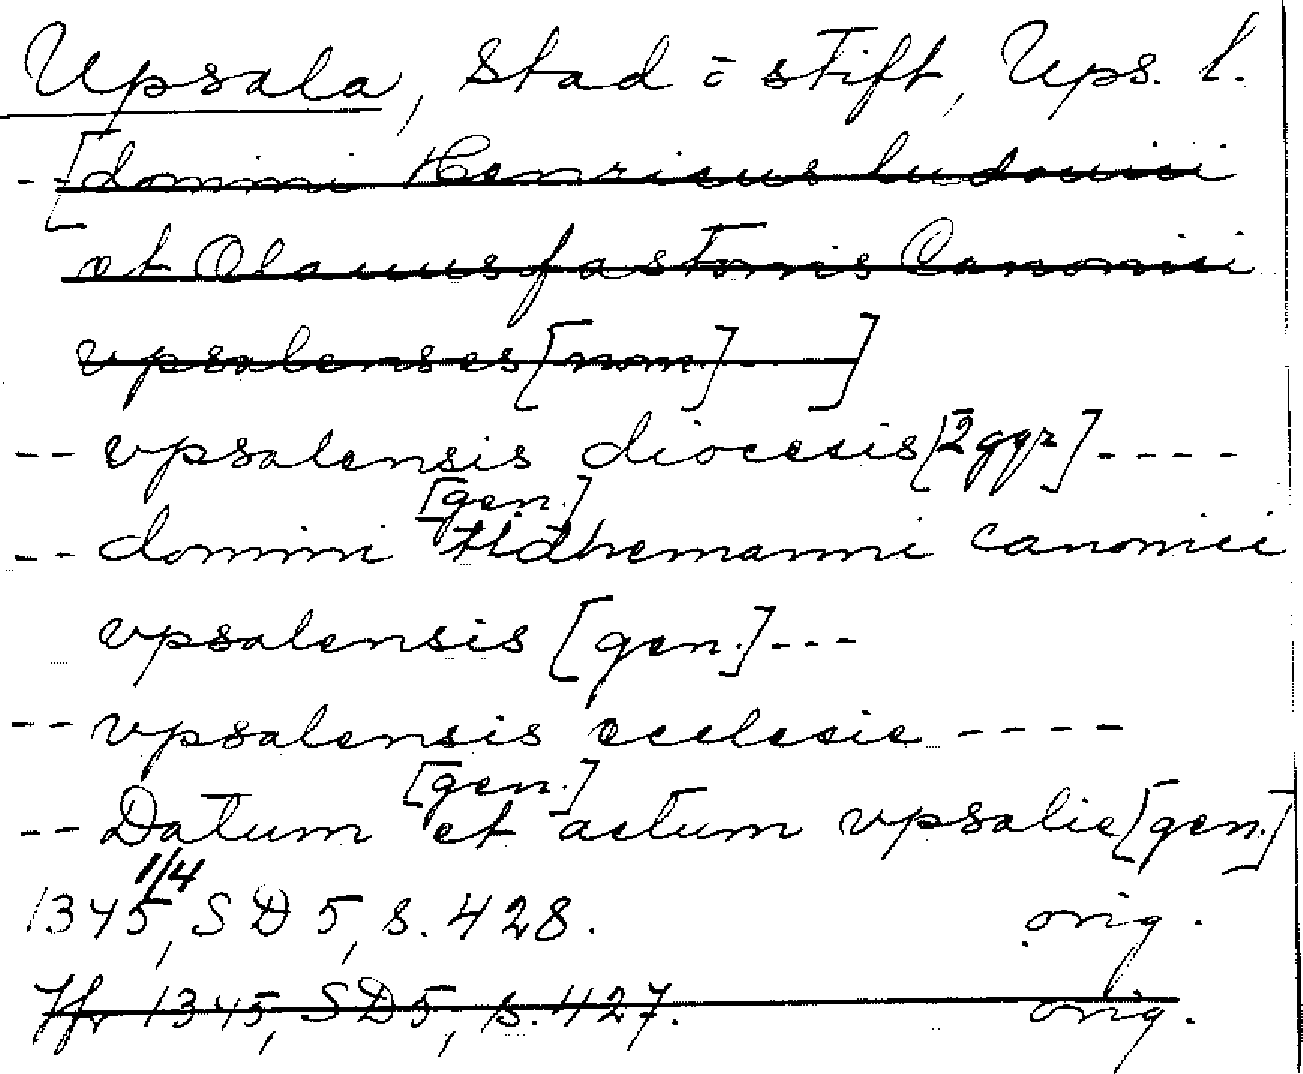 Upsala, stad o stift, Ups. l.
-- [domini Henricus ludouici
et Olauus fastonis Canonici
vpsalenses [nom] - ]
-- vpsalensis diocesis [2 ggr] ----
[gen.]
-- domini Tidhemanni canonici
vpsalensis [gen.] ---
-- vpsalensis ecclesie ----
[gen.]
-- Datum et actum vpsalie [gen.]
1/4
1345, SD 5, s. 428. orig.
Jfr 1345, SD5, s. 427. orig.